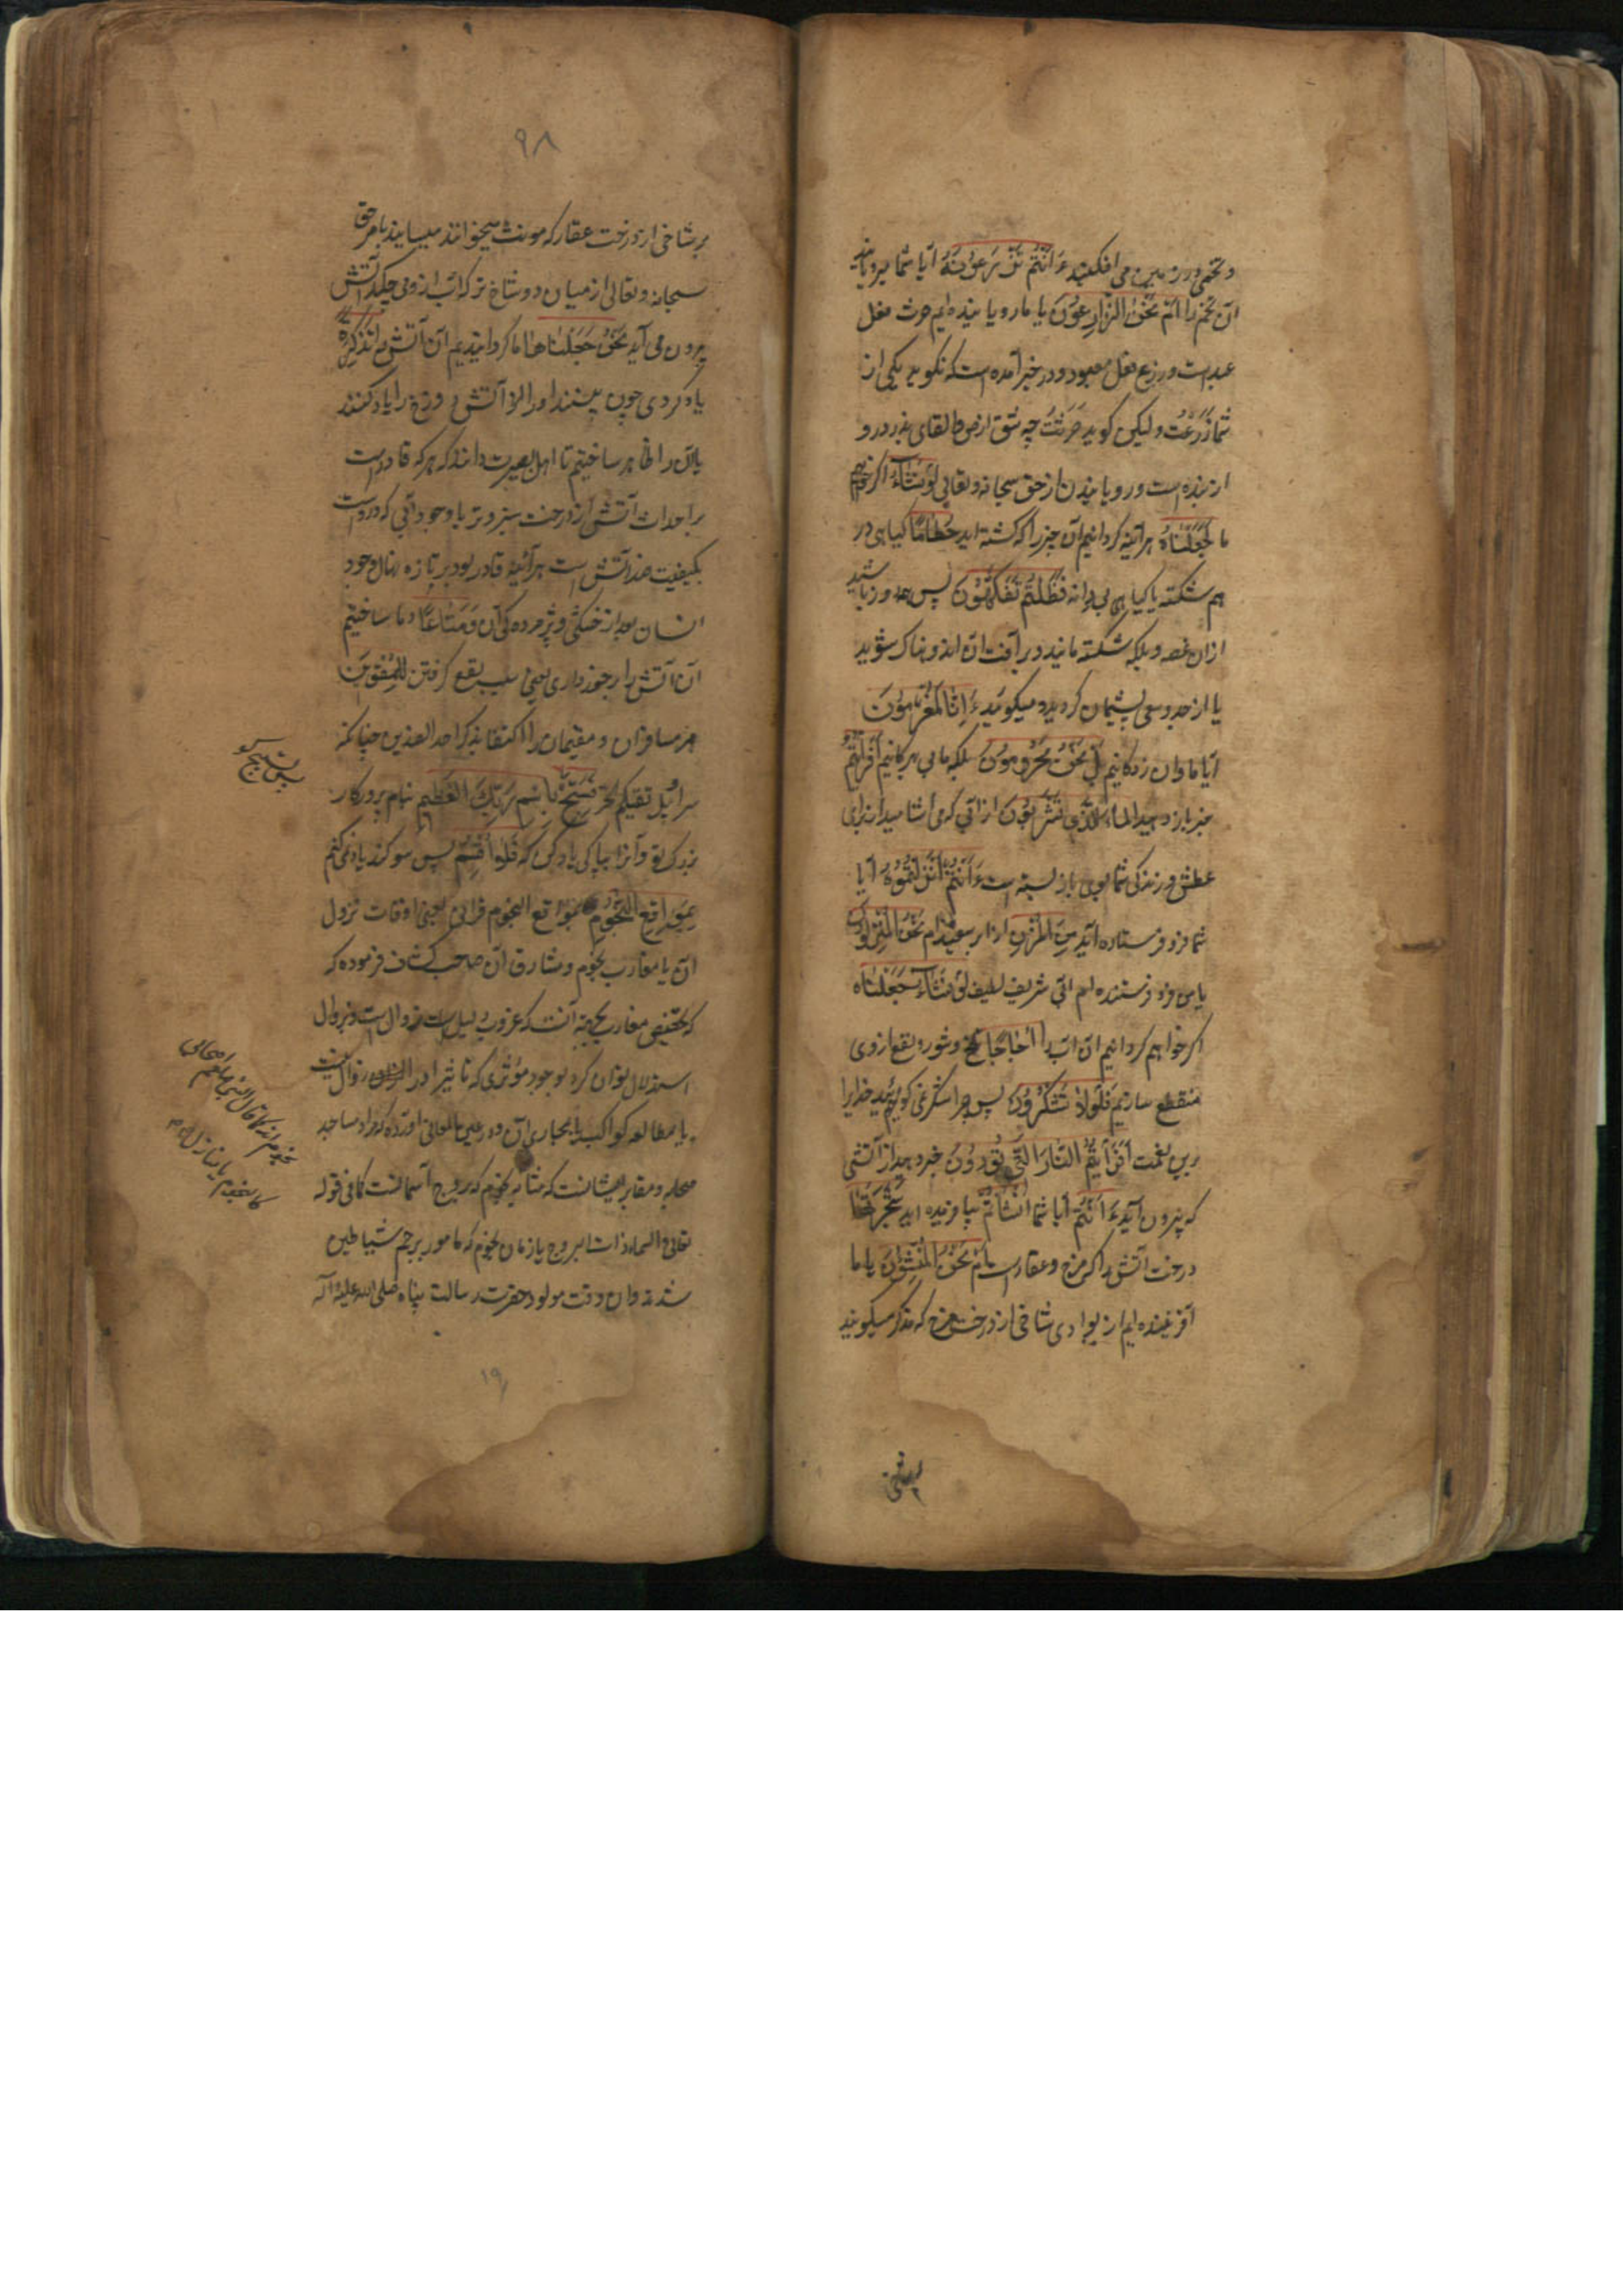 و تخمی در زمین می افکنید ءَاَنْتُمْ تَزْرَعُوْنَهُ آیا شما میرویانید
آن تخم را اَمْ نَحْنُ الزَّارِعُوْنَ یا ما رویاننده ایم حرث فعل
عبد است و زرع فعل معبود و در خبر آمده است که نگوید یکی از
شما زَرَعْتُ ولیکن گوید حَرَثْتُ چه شق ارض و القای بذر درو
از بنده است و رویانیدن از حق سبحانه و تعالی لَوْ نَشَآءُ اگر خواهیم
ما لَجَعَلْنَاهُ هرآینه گردانیم آن چیز را که کشته اید حُطَامًا گیاهی در
هم شکسته یا گیاهی بی دانه فَظَلْتُمْ تَفَكَّهُوْنَ پس همه روز باشید
ازان غصه و بلکه شکسته مانید و در آفت آن اندوهناک شوید
یا از جد و سعی پشیمان گردید و میگویید ءَاِنَّا لَمُغْرَمُوْنَ
آیا ما وان زدگانیم بَلْ نَحْنُ مَحْرُوْمُوْنَ بلکه ما بی بهرگانیم اَفَرَاَيْتُمُ
خبر باز دهید الْمَآءَ الَّذِيْ تَشْرَبُوْنَ از آبی که می آشامید از برای
عطش و زندگی شما بوی باز بسته است ءَاَنْتُمْ اَنْزَلْتُمُوْهُ آیا
شما فرو فرستاده اید مِنَ الْمُزْنِ از ابر سفید اَمْ نَحْنُ الْمُنْزِلُوْنَ
یا من فرو فرستنده ام آبی شریف لطیف لَوْ نَشَآءُ جَعَلْنَاهُ
اگر خواهیم گردانیم آن آب را اُجَاجًا تلخ و شور و نفع ازوی
منقطع سازیم فَلَوْلَا تَشْكُرُوْنَ پس چرا شکر نمی گویید خدایرا
برین نعمت اَفَرَاَيْتُمُ النَّارَ الَّتِيْ تُوْرُوْنَ خبر دهید از آتشی
که بیرون آرید ءَاَنْتُمْ آیا شما اَنْشَاْتُمْ بیافریده اید شَجَرَتَهَا
درخت آتش را که مرخ و عقار است اَمْ نَحْنُ الْمُنْشِئُوْنَ یا ما
آفریننده ایم شاخی از درخت مرخ که مذکر میگویند
۹۸
بر شاخی از درخت عقار که مونث میخوانند میسایند بامر حق
سبحانه و تعالی از میان دو شاخ تر که آب از وی میچکد آتش
بیرون می آید نَحْنُ جَعَلْنَاهَا ما گردانیدیم آن آتش را تَذْكِرَةً
یاد کردی چون بینند او را آتش دوزخ را یاد کنند
یا آن را ظاهر ساختیم تا اهل بصیرت دانند که هر که قادر است
بر احداث آتش از درخت سبز و تر با وجود آبی که درو است
بکیفیت ضد آتش است هرآینه قادر بود بر تازه نهال وجود
انسان بعد از خشکی و پژمرده گی آن وَمَتَاعًا و ما ساختیم
آن آتش را برخورداری یعنی سبب نفع گرفتن لِلْمُقْوِيْنَ
مر مسافران و مقیمان را اکتفا بذکر احد الضدین چنانکه
سرابیل تقیکم الحر فَسَبِّحْ بِاسْمِ رَبِّكَ الْعَظِيْمِ بنام پروردگار
بزرگ تو و آنرا بپاکی یاد کن که فَلَا اُقْسِمُ پس سوگند یاد نمی کنم
بِمَوَاقِعِ النُّجُوْمِ بمواقع النجوم قرآن یعنی اوقات نزول
آن یا مغارب نجوم و مشارق آن صاحب کشاف فرموده که
که تخصیص مغارب بجهة آنست که غروب دلیل است زوال است و بزوال
استدلال توان کرد بوجود مؤثری که تاثیر او را زوال نیست
یا مطالعه کواکب یا مجاری آن و در عین المعانی آورده که مراد مساجد
صحابه و مقابر ایشانست که مثابه نجوم که بروج آسمانست کما فی قوله
تعالی و السماء ذات البروج یا زمان نجوم که مامور برجم شیاطین
شدند و آن وقت مولود حضرت رسالت پناه صلی الله علیه و آله
پس تسبیح گو
۱۹